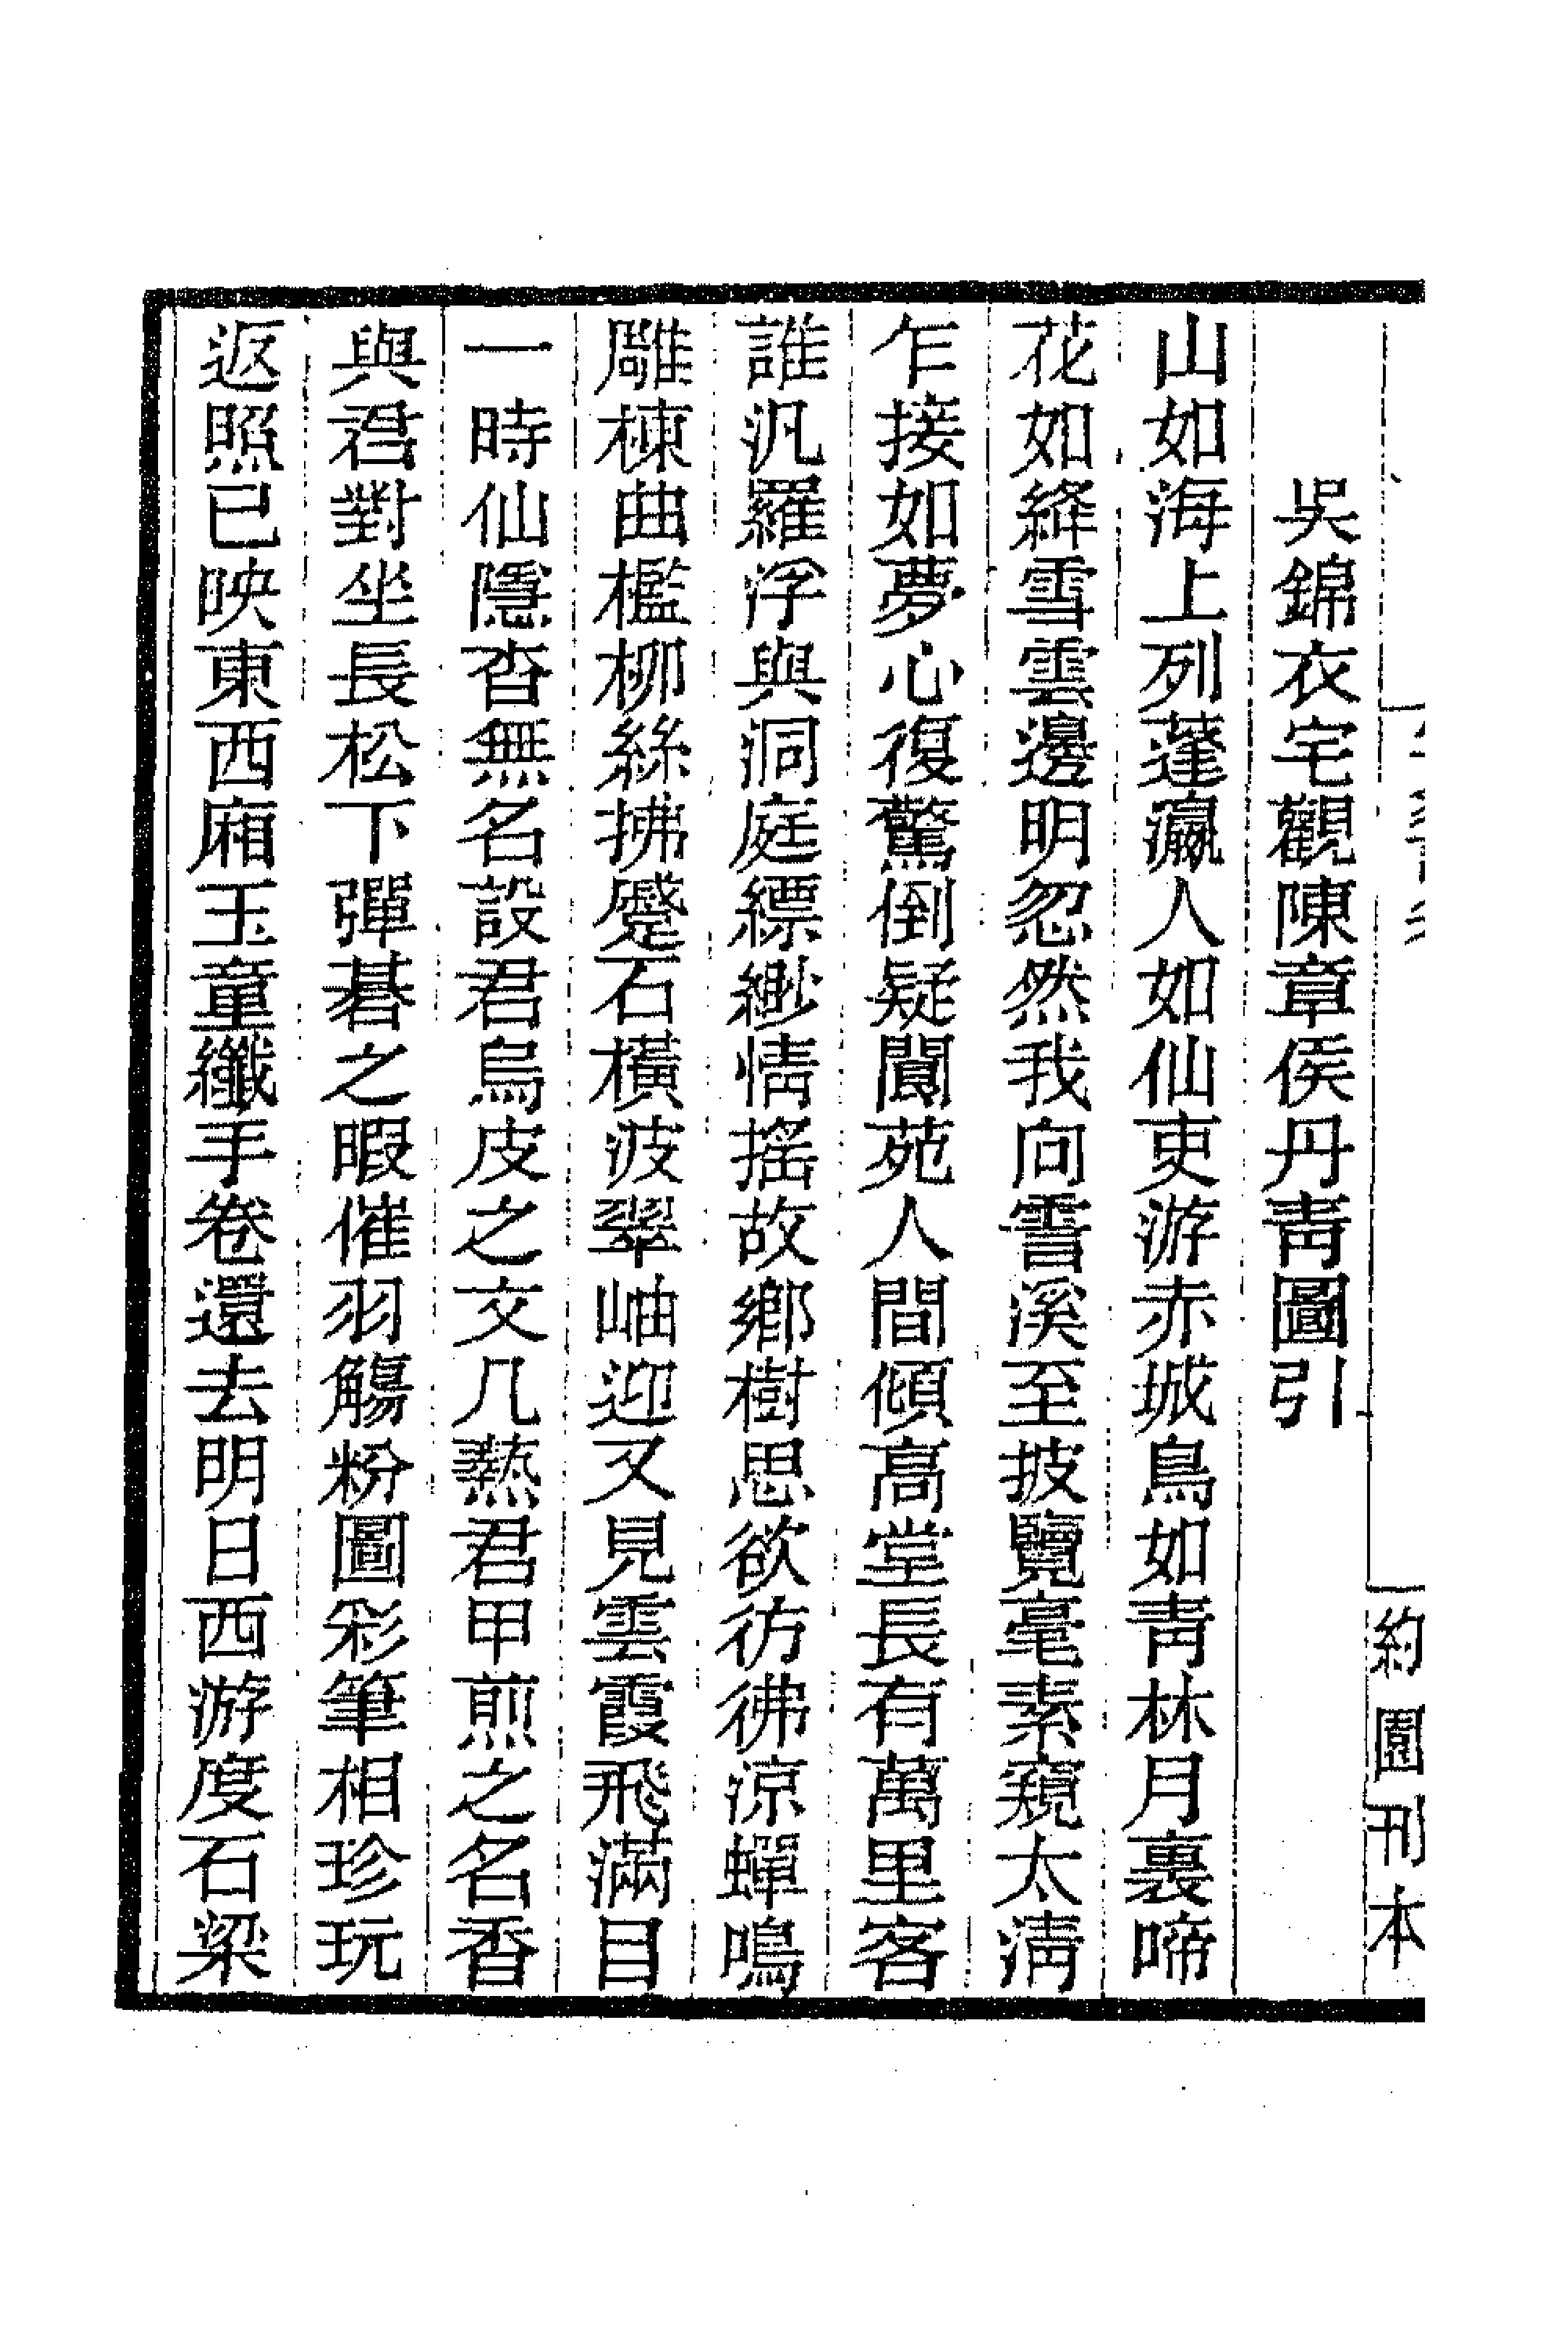 吳錦衣宅觀陳章侯丹靑圖引
山如海上列蓬瀛人如仙吏游赤城鳥如靑林月裏啼
花如絳雪雲邊明忽然我向霅溪至披覽毫素窺太淸
乍接如夢心復驚倒疑閬苑人間傾高堂長有萬里客
誰汎羅浮與洞庭縹緲情搖故鄉樹思欲彷彿涼蟬鳴
雕棟曲檻柳絲拂蹙石橫波翠岫迎又見雲霞飛滿目
一時仙隱杳無名設君烏皮之文几爇君甲煎之名香
與君對坐長松下彈碁之暇催羽觴粉圖彩筆相珍玩
返照已映東西廂玉童纖手卷還去明日西游度石梁
約園刊本